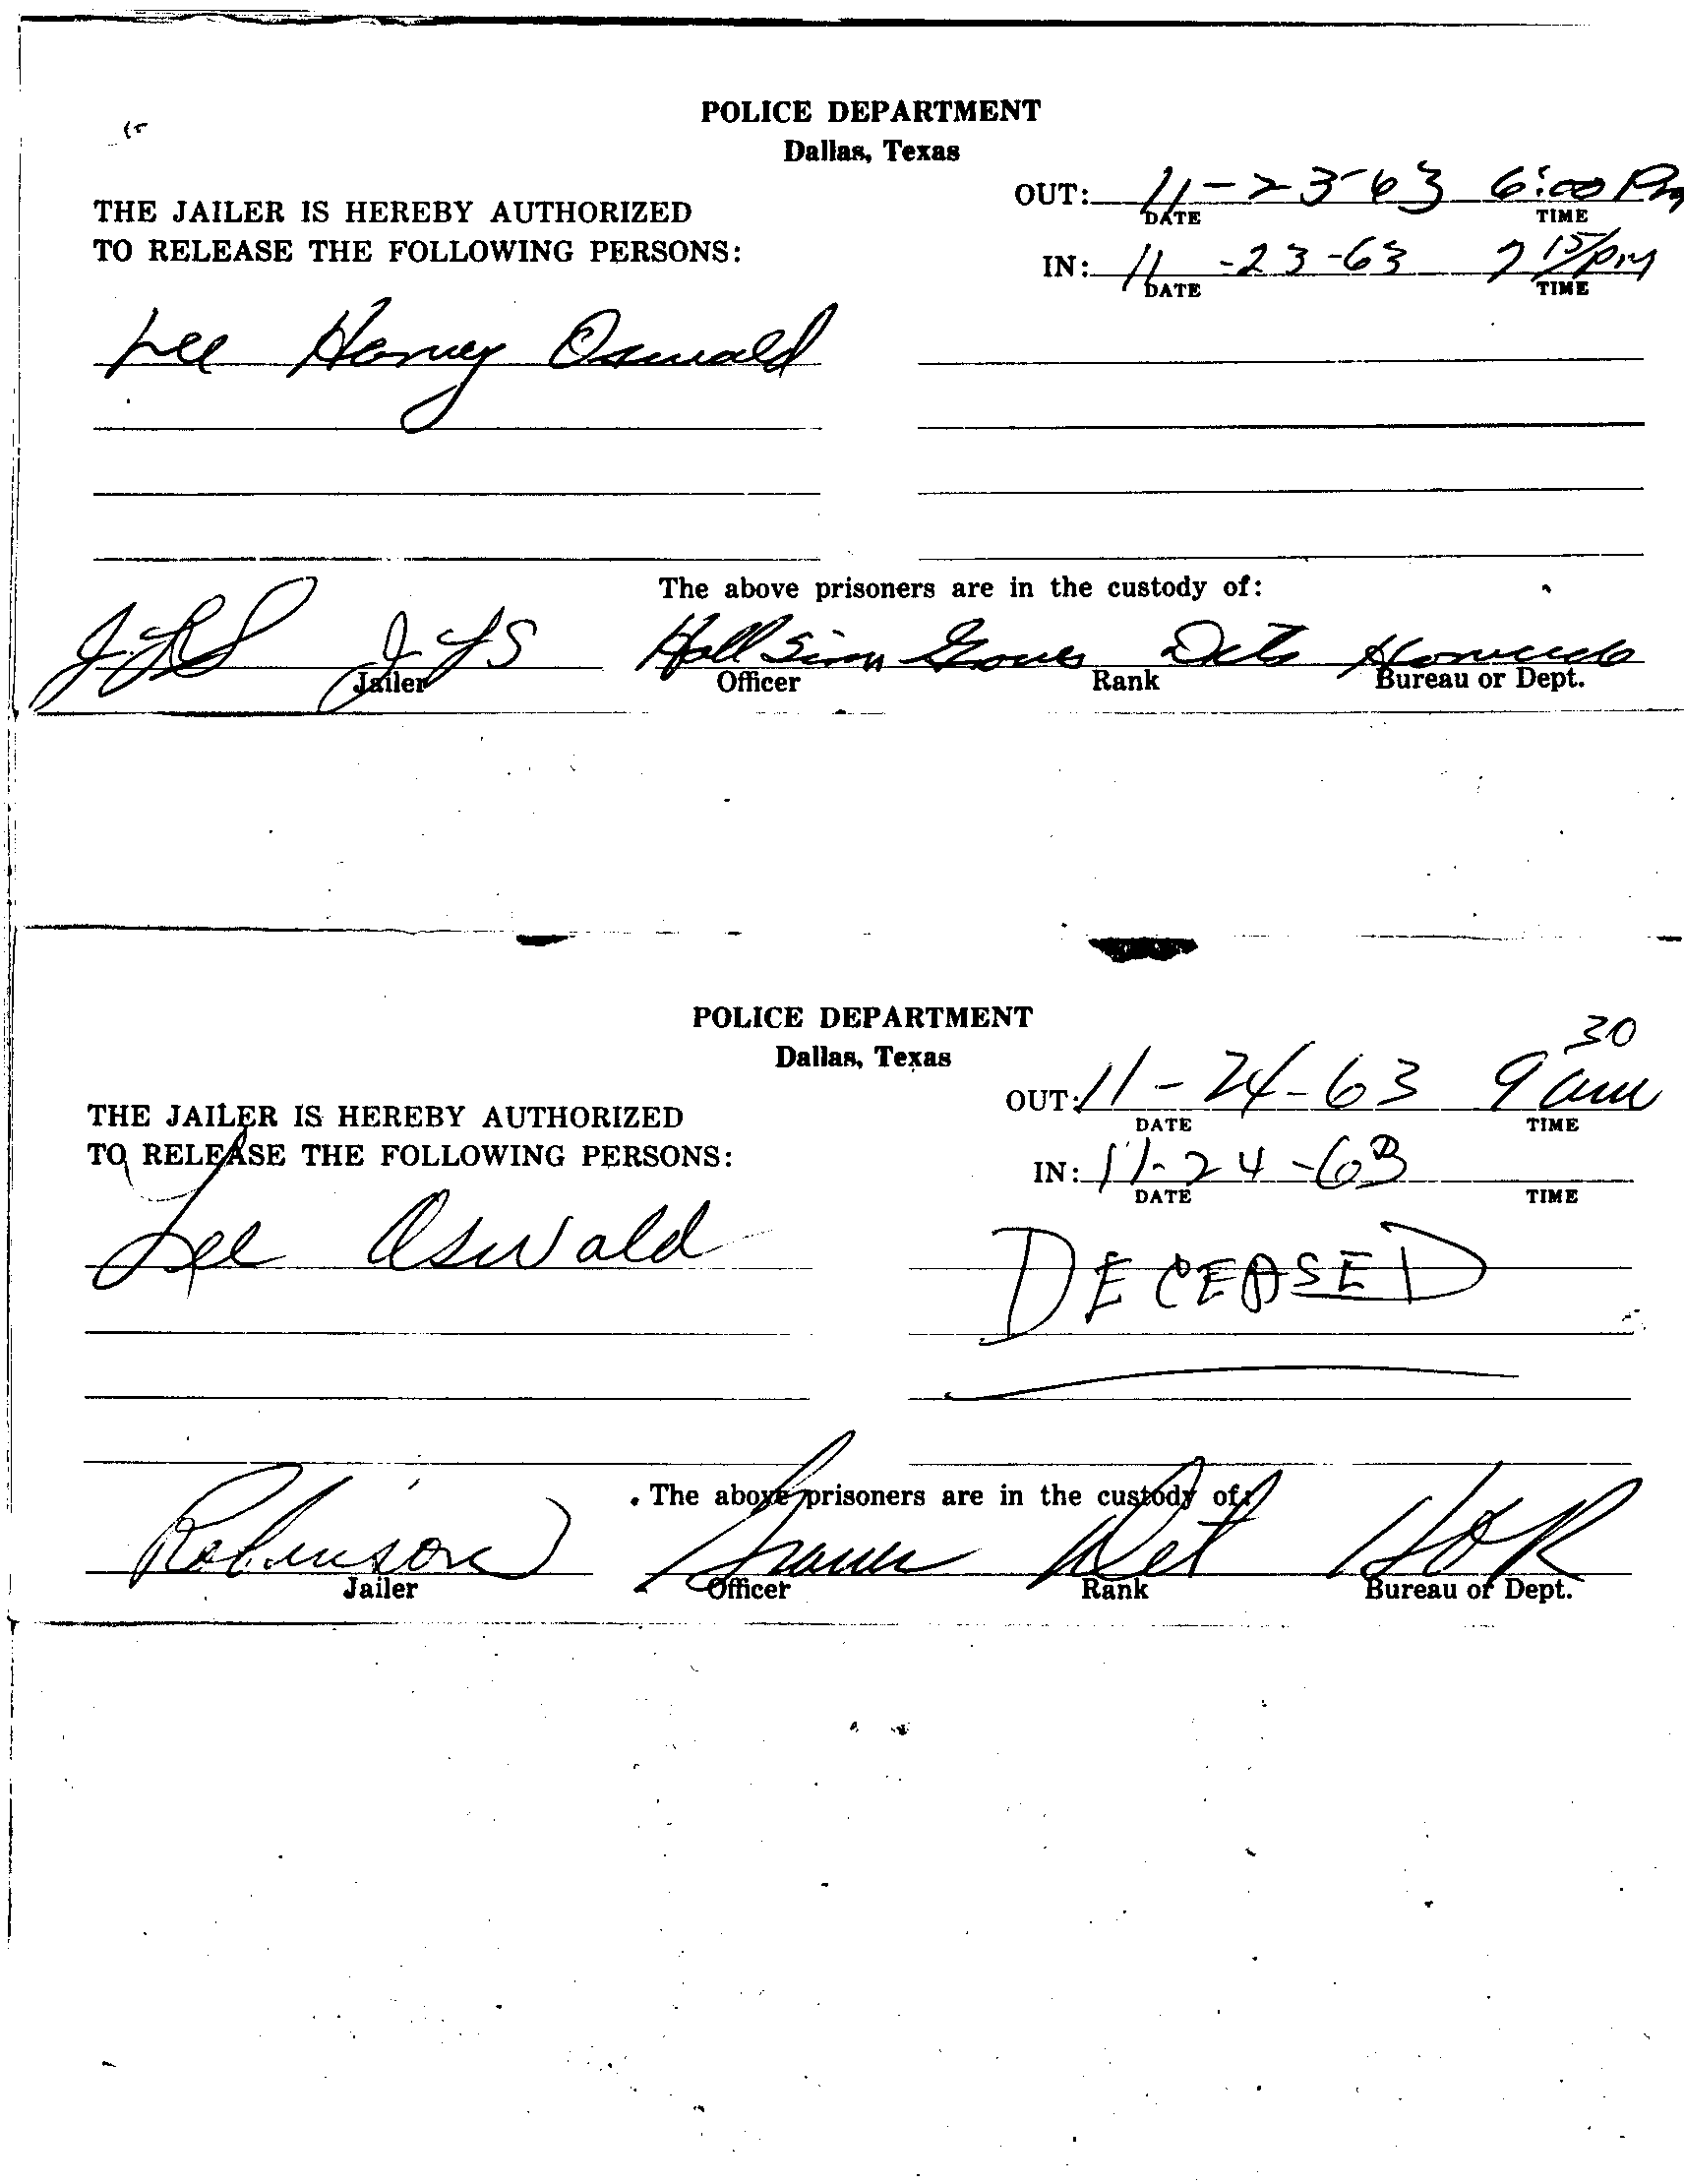 POLICE DEPARTMENT
Dallas, Texas
OUT: 11-23-63 6:00 Pm
DATE TIME
THE JAILER IS HEREBY AUTHORIZED
TO RELEASE THE FOLLOWING PERSONS:
IN: 11-23-63 7 15/pm
DATE TIME
Lee Harvey Oswald
The above prisoners are in the custody of:
JLS JLS Hall Sims Graves Dets Homicide
Jailer Officer Rank Bureau or Dept.
POLICE DEPARTMENT
Dallas, Texas
OUT: 11-24-63 9 30 am
DATE TIME
THE JAILER IS HEREBY AUTHORIZED
TO RELEASE THE FOLLOWING PERSONS:
IN: 11-24-63
DATE TIME
Lee Oswald DECEASED
The above prisoners are in the custody of:
Robinson Graves Det H&R
Jailer Officer Rank Bureau or Dept.